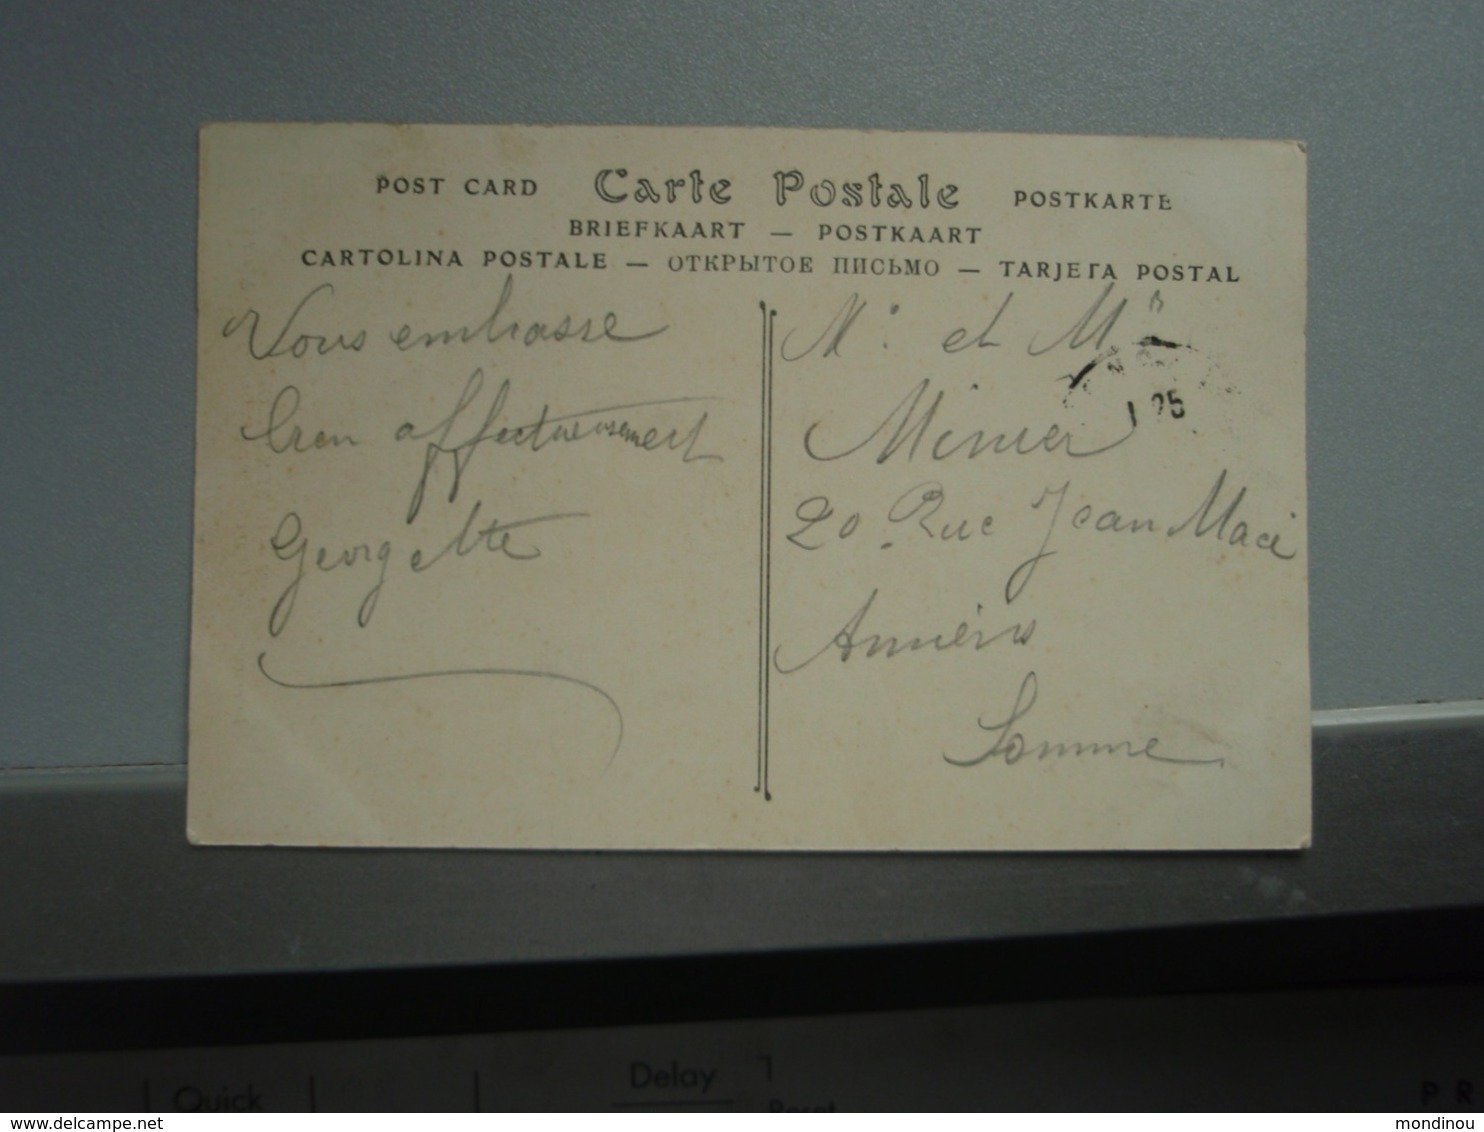 POST CARD Carte Postale POSTKARTE
BRIEFKAART — POSTKAART
CARTOLINA POSTALE — ОТКРЫТОЕ ПИСЬМО — TARJETA POSTAL
Vous embrasse
bien affectueusement
Georgette
Mr et Mme
Minier
20 Rue Jean Macé
Amiens
Somme
25
Delay
Quick
Reset
PR
delcampe.net
mondinou